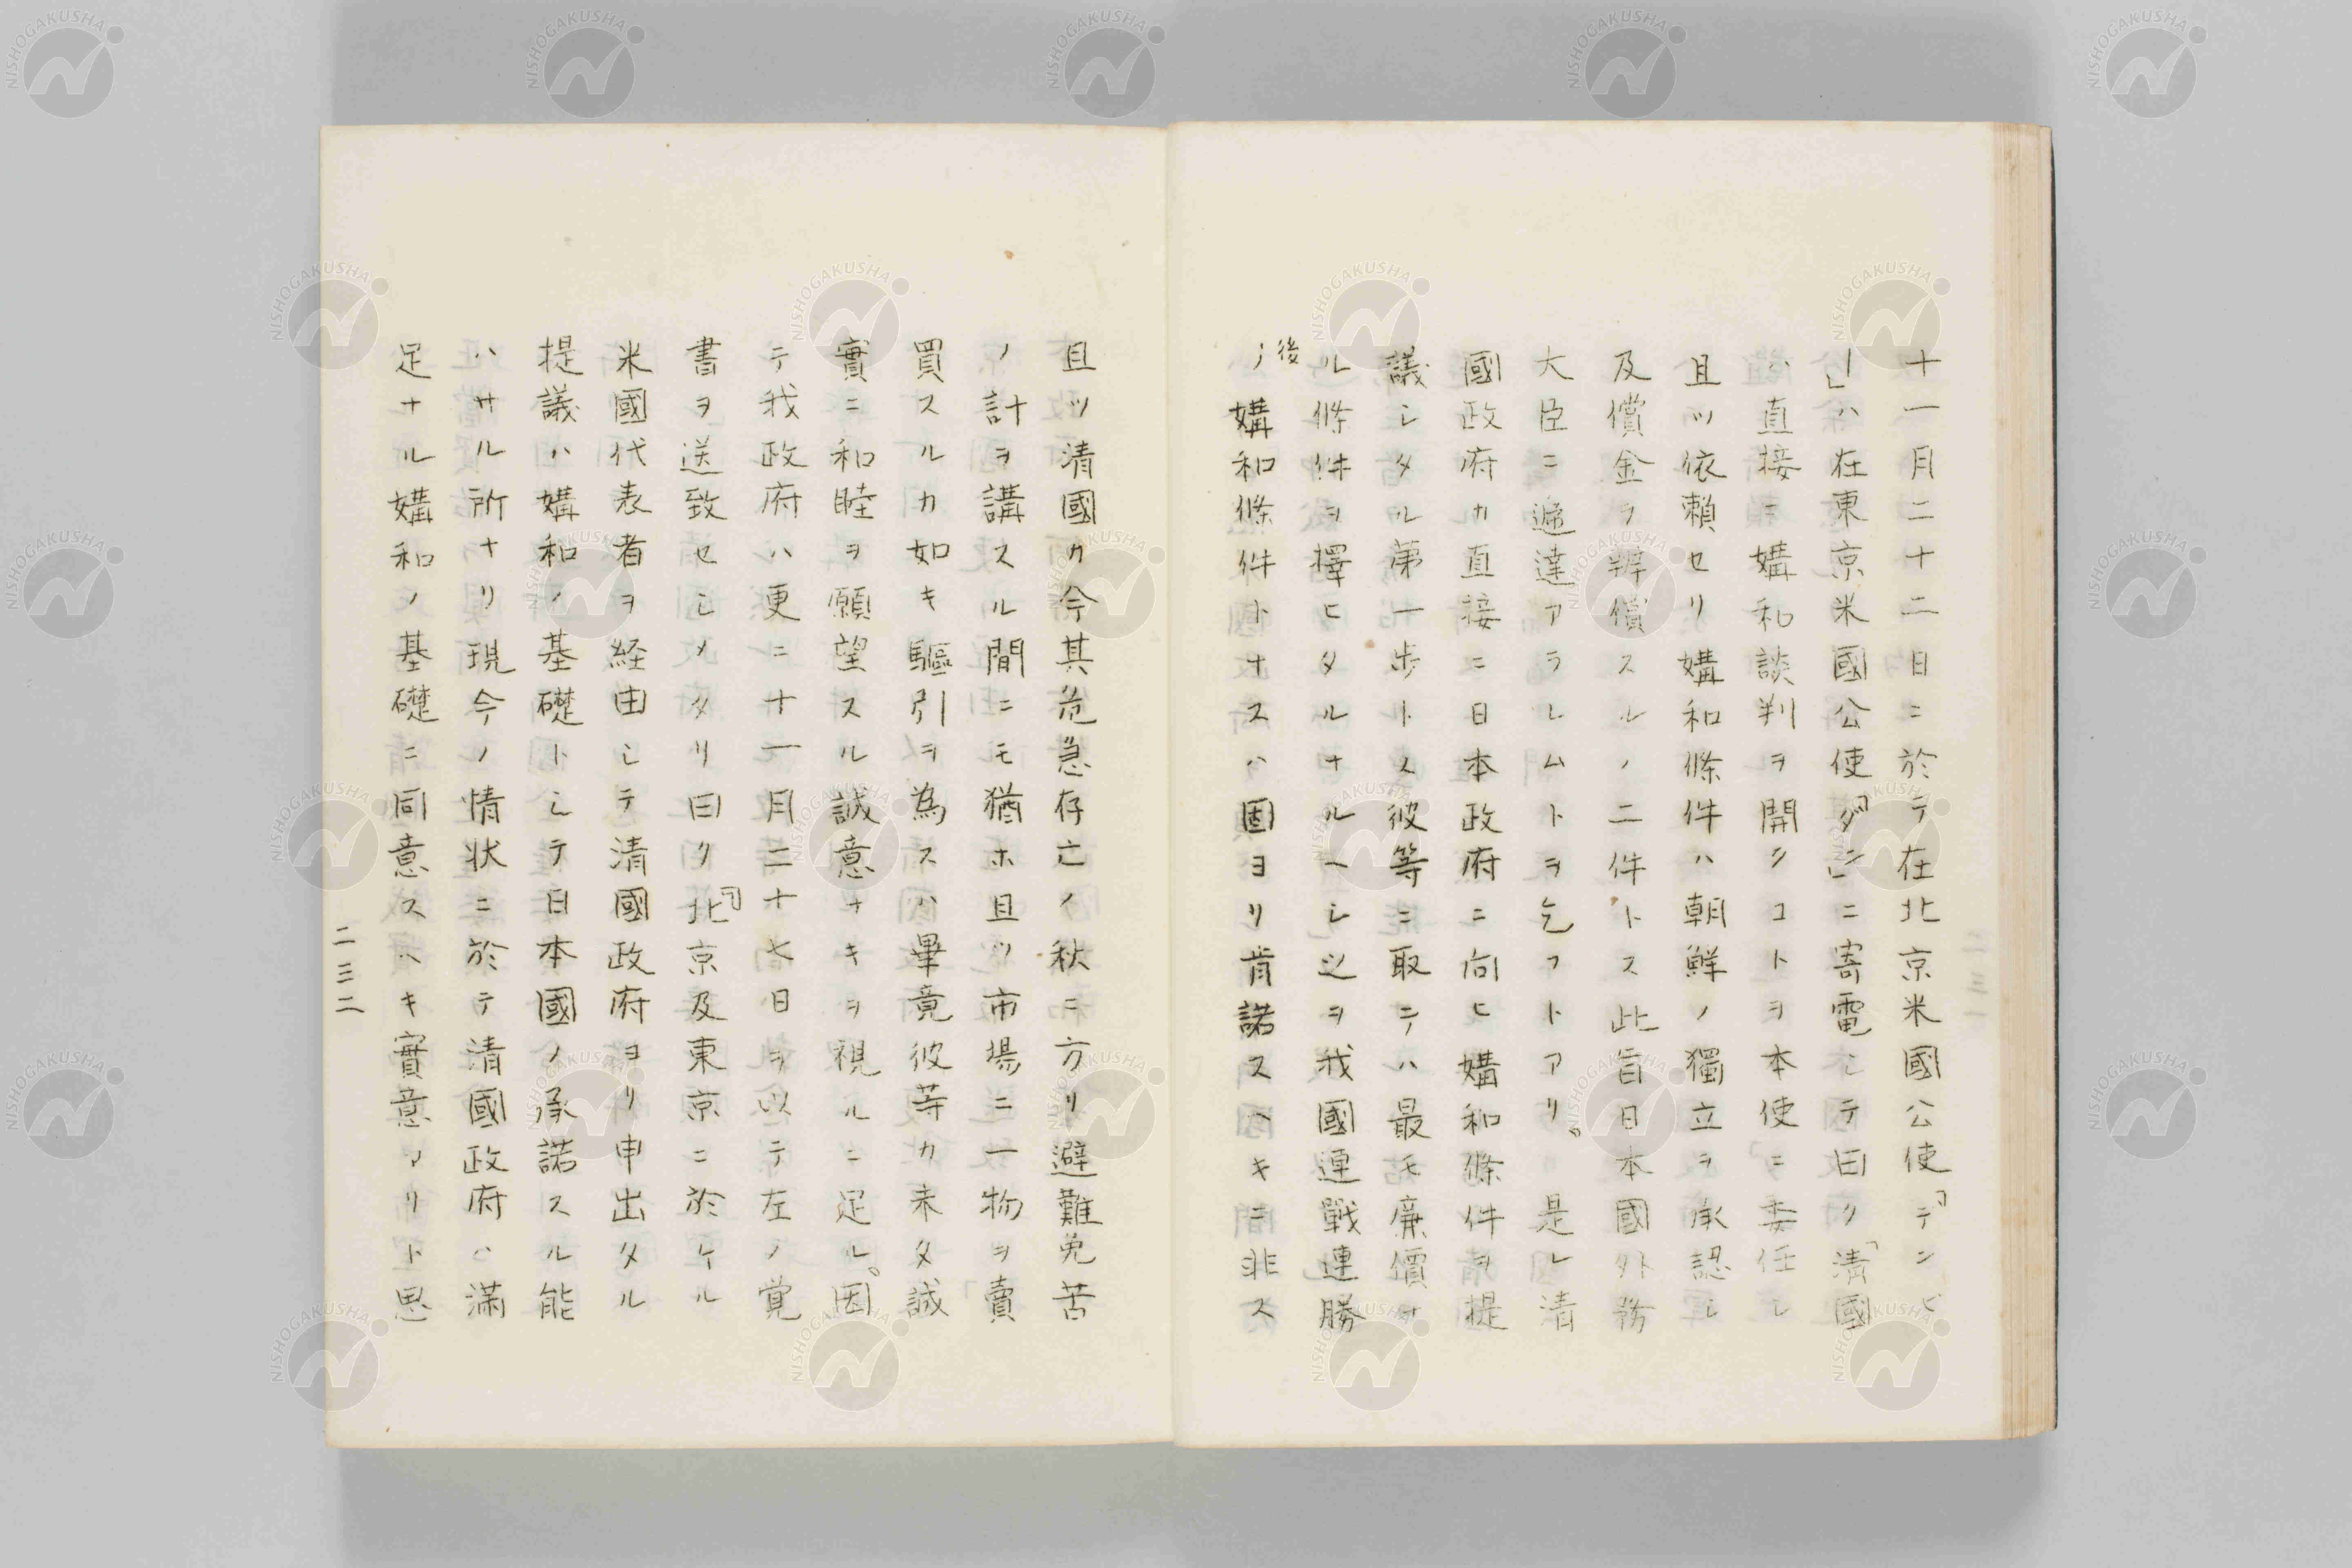 十一月二十二日ニ於テ在北京米國公使「テンビ
ー」ハ在東京米國公使「ダン」ニ寄電シテ曰ク「清國
ハ直接ニ媾和談判ヲ開クコトヲ本使ニ委任シ
且ツ依頼セリ媾和條件ハ朝鮮ノ獨立ヲ承認シ
及償金ヲ辨償スルノ二件トス此旨日本國外務
大臣ニ逓達アラレムトヲ乞フトアリ。是レ清
國政府カ直接ニ日本政府ニ向ヒ媾和條件ヲ提
議シタル第一歩トス彼等ニ取テハ最モ廉價ナ
ル條件ヲ擇ヒタルナルヘシ之ヲ我國連戰連勝
後
ノ媾和條件トナスハ固ヨリ肯諾スヘキニ非ス
且ツ清國カ今其危急存亡ノ秋ニ方リ避難免苦
ノ計ヲ講スル間ニモ猶ホ且ツ市場ニ一物ヲ賣
買スルカ如キ驅引ヲ為スハ畢竟彼等カ未タ誠
實ニ和睦ヲ願望スル誠意ナキヲ視ルニ足ル。因
テ我政府ハ更ニ十一月二十七日ヲ以テ左ノ覚
書ヲ送致セシメタリ曰ク「北京及東京ニ於ケル
米國代表者ヲ経由シテ清國政府ヨリ申出タル
提議ハ媾和ノ基礎トシテ日本國ノ承諾スル能
ハサル所ナリ現今ノ情状ニ於テ清國政府ハ滿
足ナル媾和ノ基礎ニ同意スヘキ實意アリト思
二三二
NISHOGAKUSHA